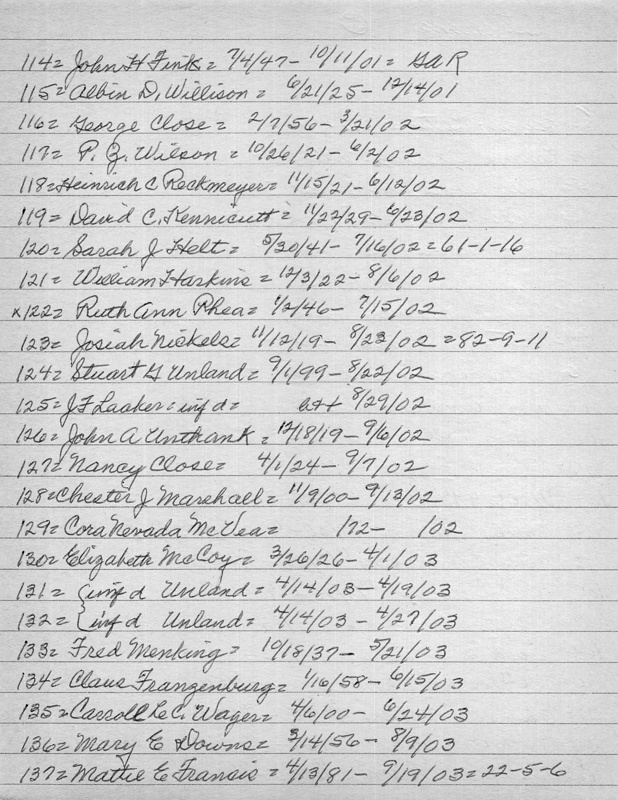 114= John H Fink = 7/4/47 - 10/11/01 = GAR
115= Albin D. Willison = 6/21/25 - 12/14/01
116= George Close = 2/7/56 - 3/21/02
117= P. Z. Wilson = 10/26/21 - 6/2/02
118= Heinrich C Reckmeyer = 11/15/21 - 6/12/02
119= David C. Kennicutt = 11/22/29 - 6/23/02
120= Sarah J Helt = 5/30/41 - 7/16/02 = 61-1-16
121= William Harkins = 12/3/22 - 8/6/02
x122= Ruth Ann Rhea = 1/2/46 - 7/15/02
123= Josiah Nickels = 11/12/19 - 8/23/02 = 82-9-11
124= Stuart G Unland = 9/1/99 - 8/22/02
125= J F Laaker = inf d = 8/29/02
126= John A Unthank = 12/18/19 - 9/6/02
127= Nancy Close = 4/1/24 - 9/7/02
128= Chester J Marshall = 11/9/00 - 9/13/02
129= Cora Nevada McVea = /72 - /02
130= Elizabeth McCoy = 3/26/26 - 4/1/03
131= { inf d Unland = 4/14/03 - 4/19/03
132= { inf d Unland = 4/14/03 - 4/27/03
133= Fred Menking = 10/18/37 - 5/21/03
134= Claus Frangenburg = 1/16/58 - 6/15/03
135= Carroll Le C. Wager = 4/6/00 - 6/24/03
136= Mary E Downs = 3/14/56 - 8/9/03
137= Mattie E Francis = 4/13/81 - 9/19/03 = 22-5-6